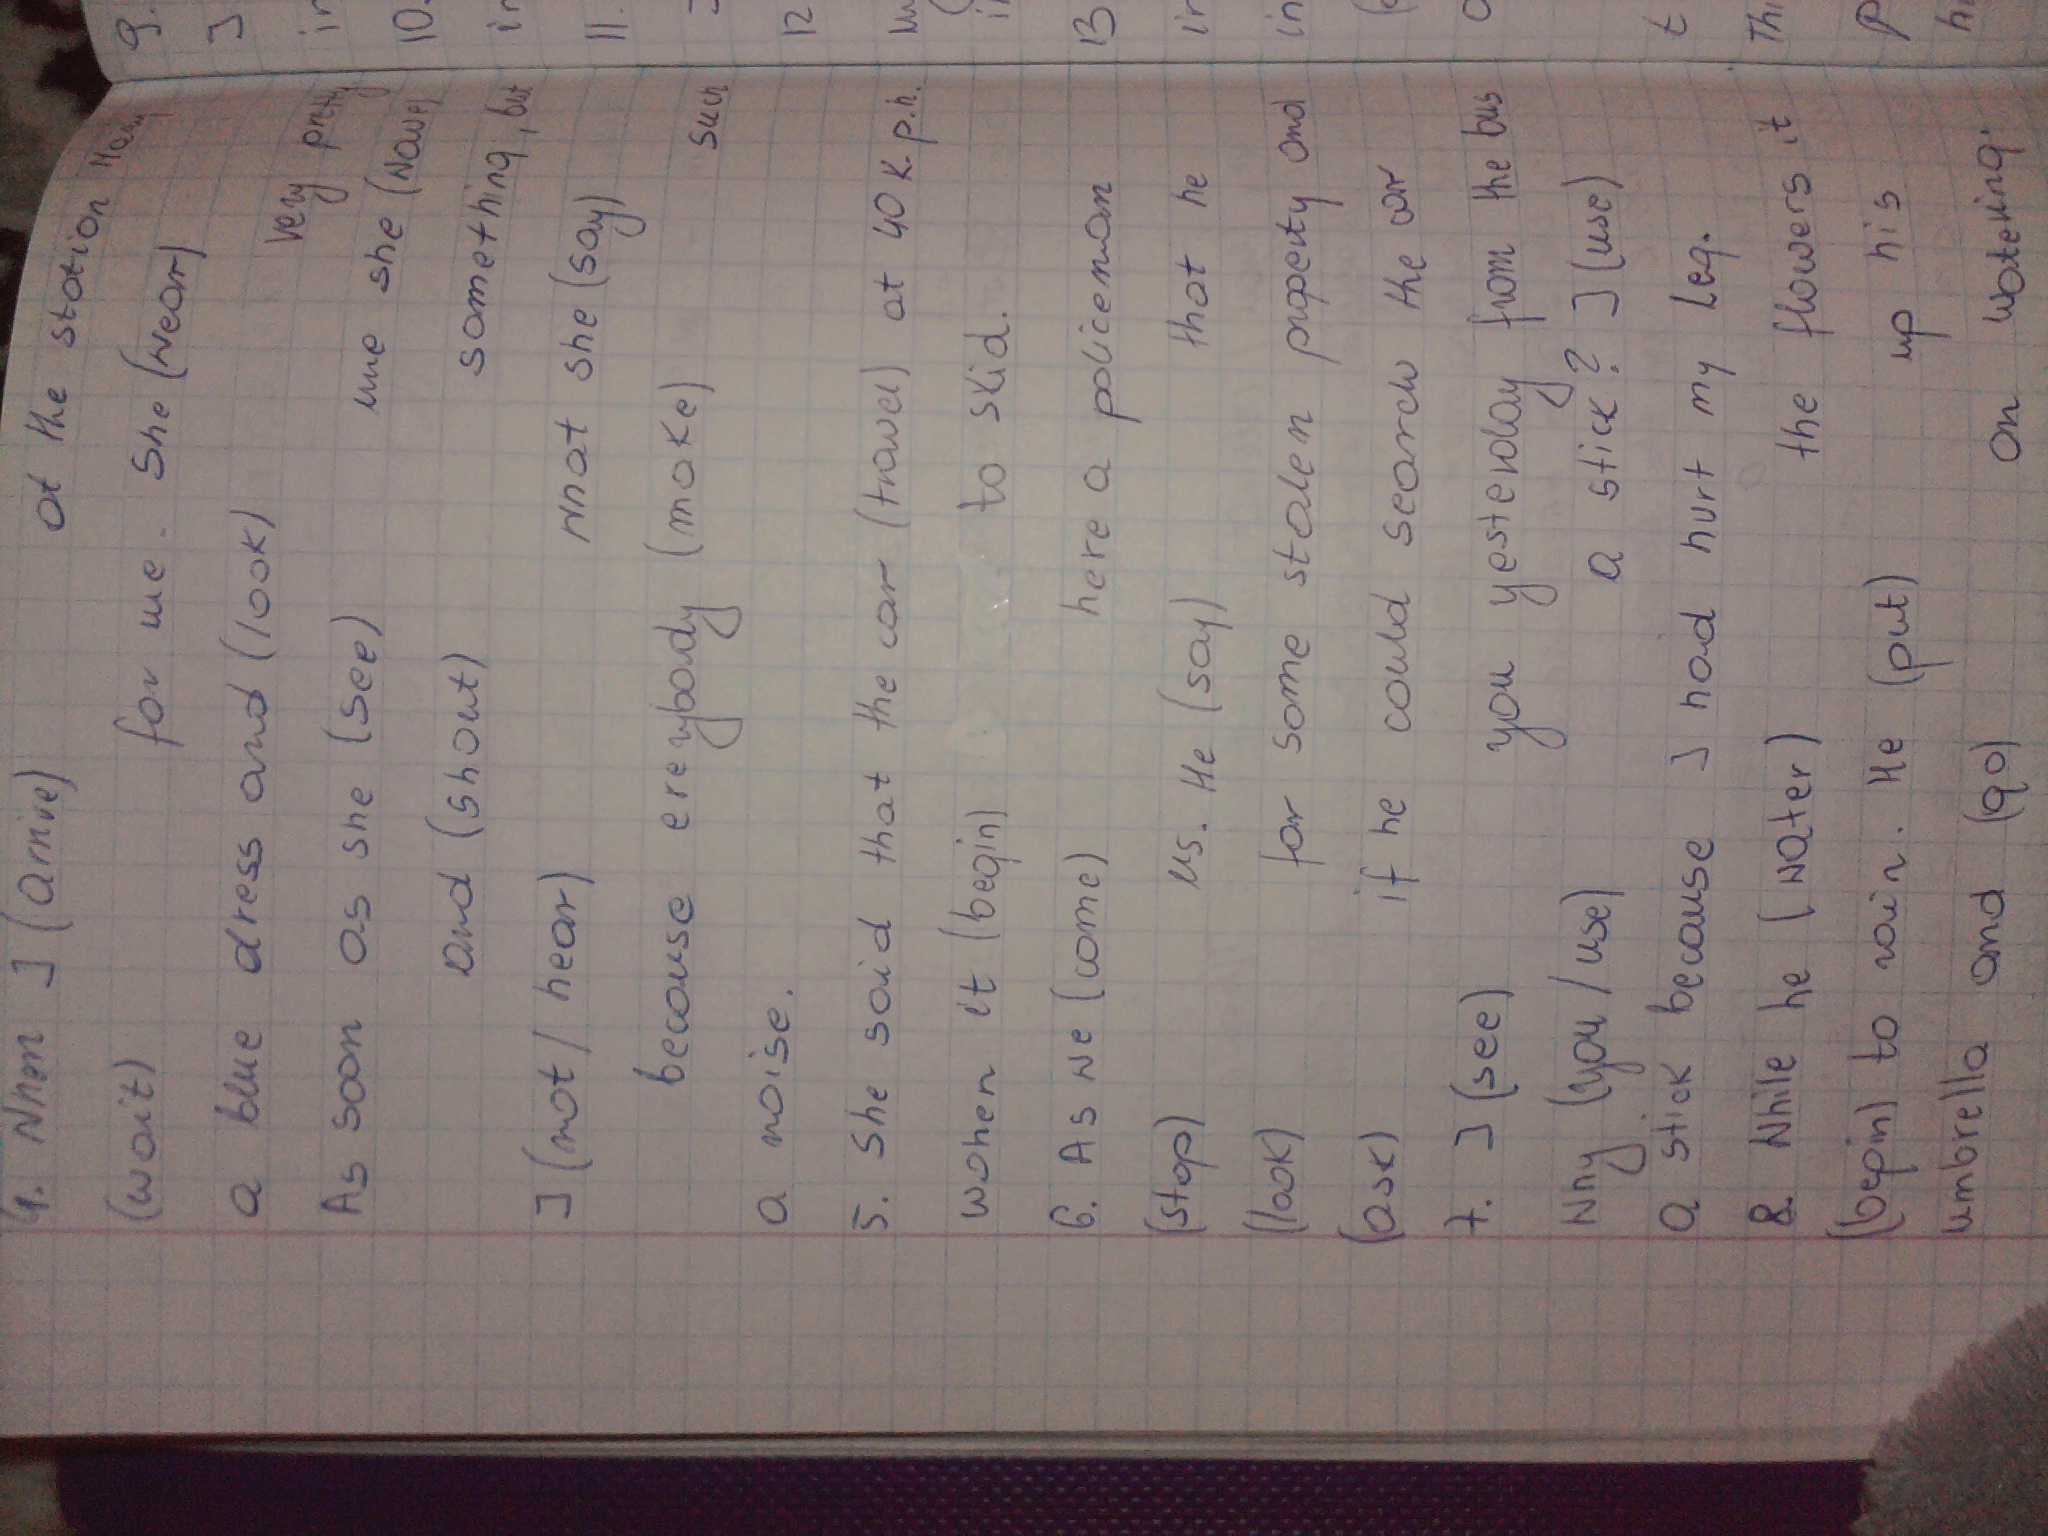 4. When I (arrive) at the station Mary
(wait) for me. She (wear)
a blue dress and (look) very pretty
As soon as she (see) me she (wave)
and (shout) something, but
I (not / hear) what she (say)
because everybody (make) such
a noise.
5. She said that the car (travel) at 40 k.p.h.
when it (begin) to skid.
6. As we (come) here a policeman
(stop) us. He (say) that he
(look) for some stolen property and
(ask) if he could search the car
7. I (see) you yesterday from the bus
Why (you / use) a stick? I (use)
a stick because I had hurt my leg.
8. While he (water) the flowers it
(begin) to rain. He (put) up his
umbrella and (go) on watering.
9.
I
in
10.
in
11.
12
in
13
in
in
t
Thi
p
hi